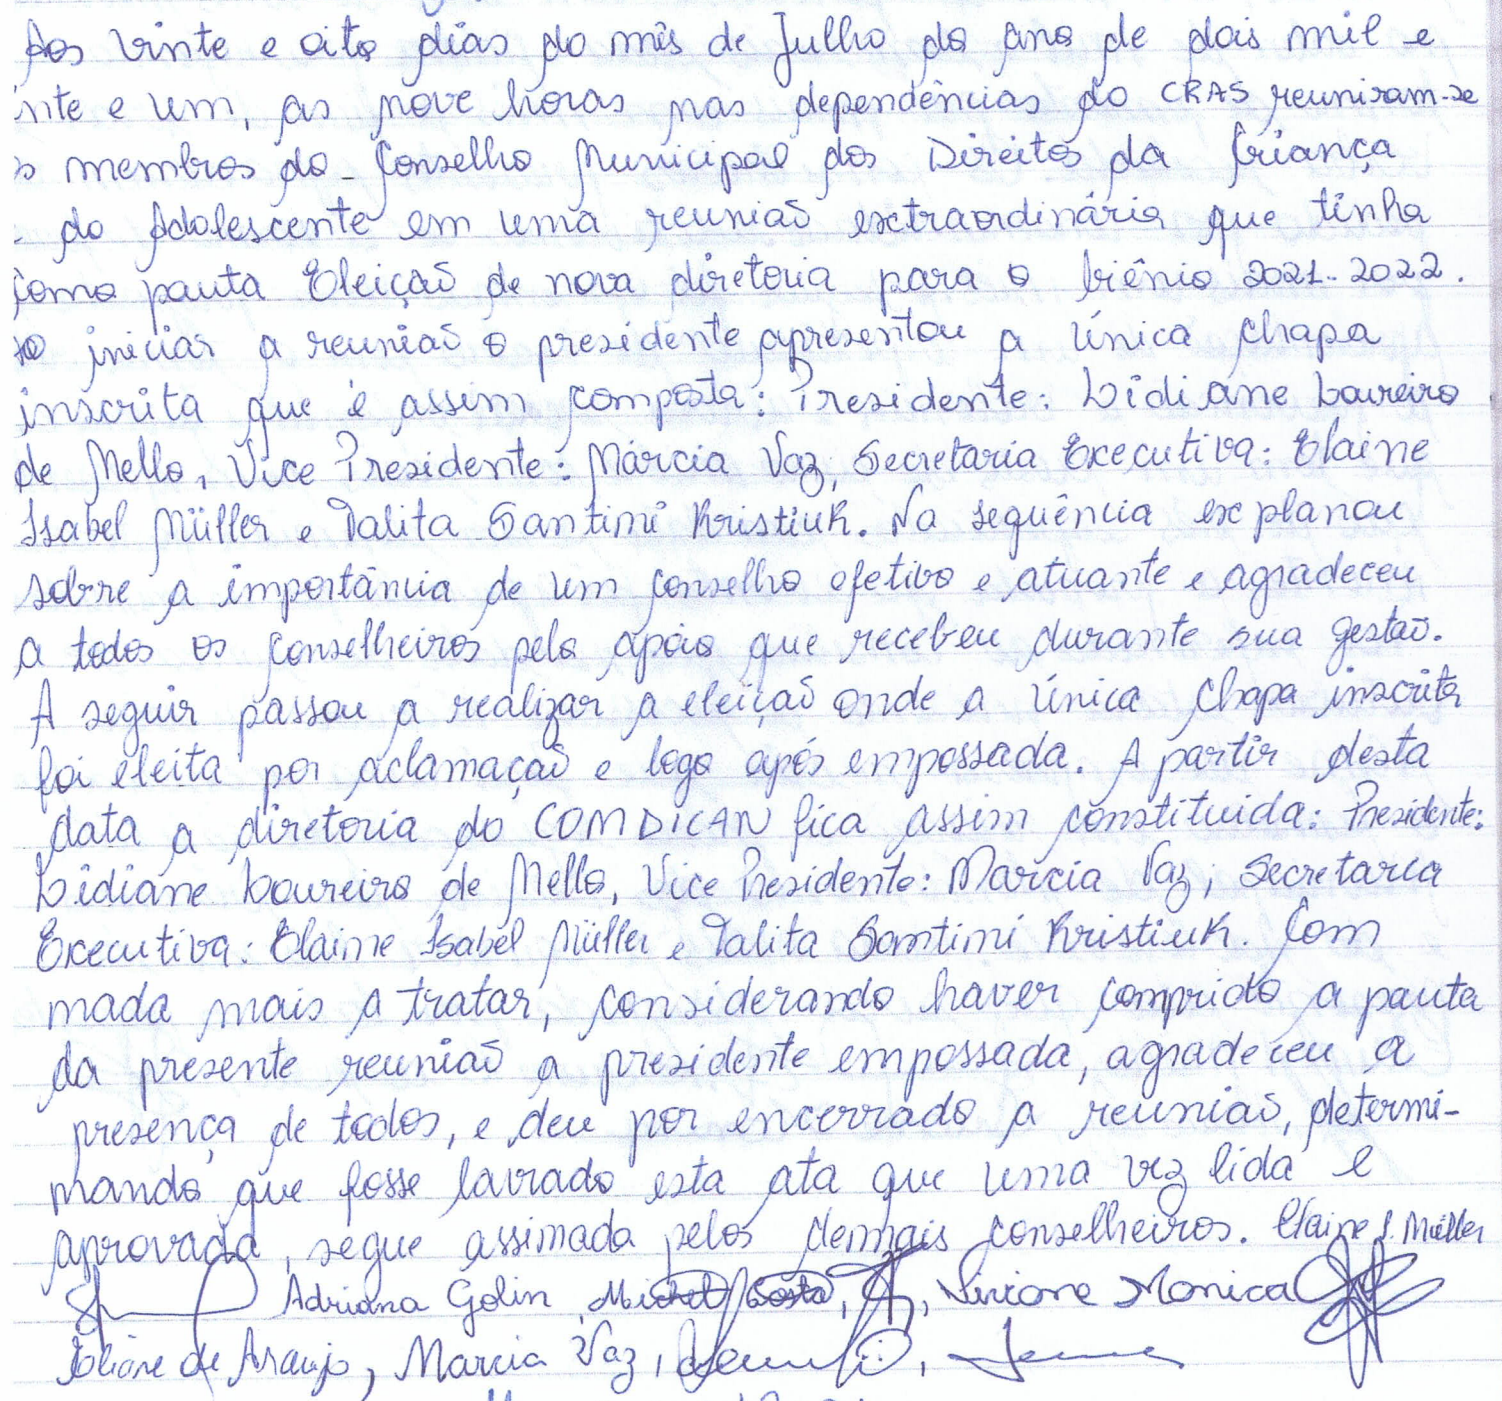 Aos vinte e oito dias do mês de Julho do ano de dois mil e
inte e um, as nove horas nas dependências do CRAS reuniram-se
s membros do Conselho Municipal dos Direitos da Criança
e do Adolescente em uma reunião extraordinária que tinha
como pauta Eleição de nova diretoria para o biênio 2021-2022.
ao iniciar a reunião o presidente apresentou a única chapa
inscrita que é assim composta: Presidente: Lidiane Loureiro
de Mello, Vice Presidente: Márcia Vaz, Secretaria Executiva: Elaine
Isabel Müller e Talita Santini Kristiuk. Na sequência explanou
sobre a importância de um conselho efetivo e atuante e agradeceu
a todos os conselheiros pelo apoio que recebeu durante sua gestão.
A seguir passou a realizar a eleição onde a única chapa inscrita
foi eleita por aclamação e logo após empossada. A partir desta
data a diretoria do COMDICAN fica assim constituida: Presidente:
Lidiane Loureiro de Mello, Vice Presidente: Marcia Vaz, Secretaria
Executiva: Elaine Isabel Müller e Talita Santini Kristiuk. Com
nada mais a tratar, considerando haver comprido a pauta
da presente reunião a presidente empossada, agradeceu a
presença de todos, e deu por encerrado a reunião, determi-
nando que fosse lavrado esta ata que uma vez lida e
aprovada, segue assinada pelos demais conselheiros. Elaine I. Müller
Adriana Golin, Michel Costa, Viviane Monica
Eliane de Araujo, Marcia Vaz,